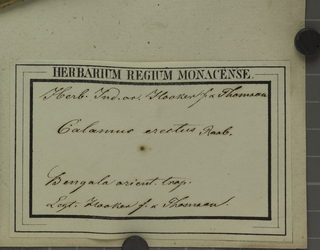 HERBARIUM REGIUM MONACENSE.
Herb. Ind. or. Hooker f. & Thomson
Calamus erectus Roxb.
Bengala orient. trop.
Legt. Hooker f. & Thomson.